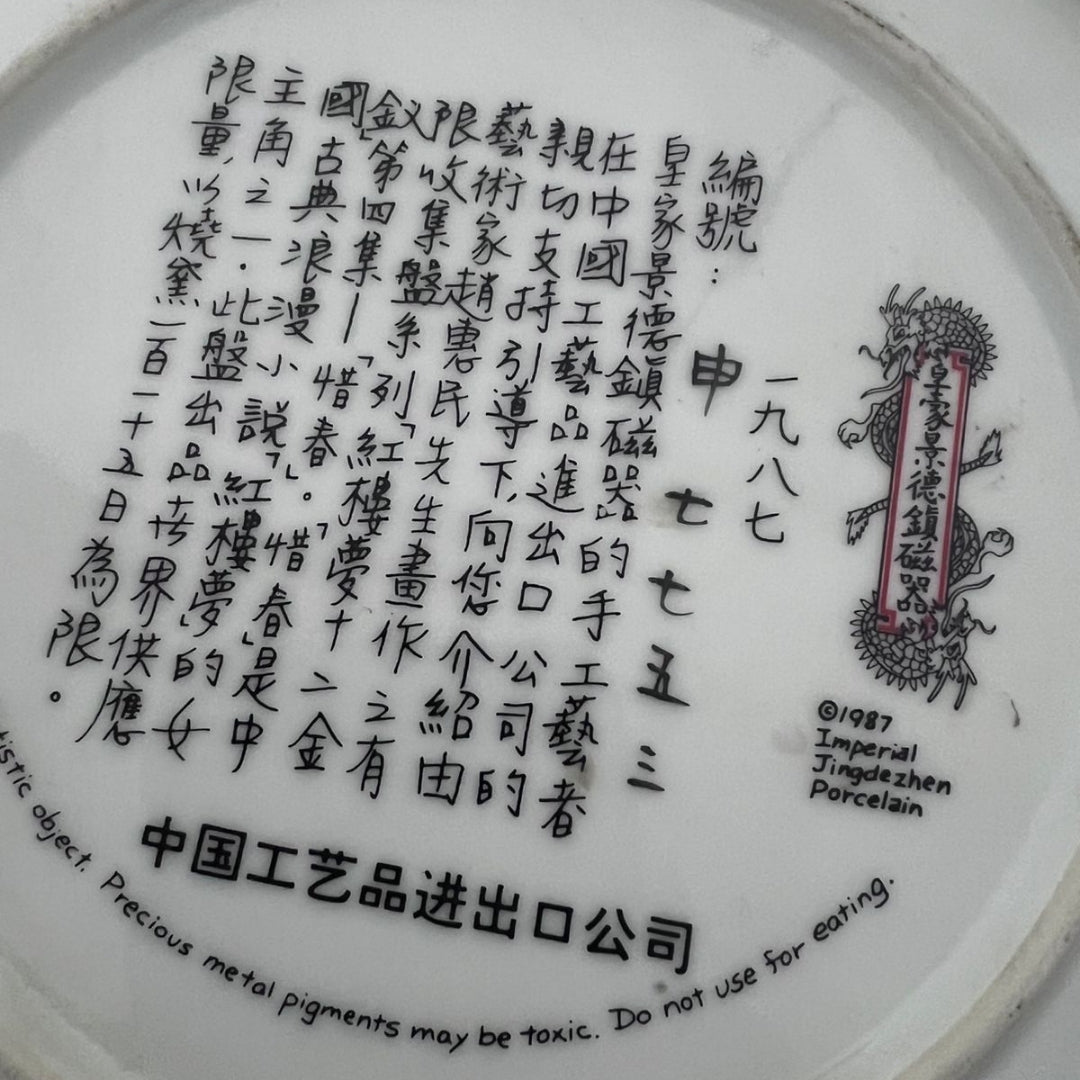 皇家景德鎮磁器
©1987
Imperial
Jingdezhen
Porcelain
一九八七
編號：申七七五三
皇家景德鎮磁器的手工藝者
在中國工藝品進出口公司的
親切支持引導下，向您介紹由
藝術家趙惠民先生畫作之有
限收集盤系列「紅樓夢十二金
釵」第四集—「惜春」。「惜春」是中
國古典浪漫小說「紅樓夢」的女
主角之一．此盤出品世界供應
限量，以燒窯一百一十五日為限。
中国工艺品进出口公司
object. Precious metal pigments may be toxic. Do not use for eating.